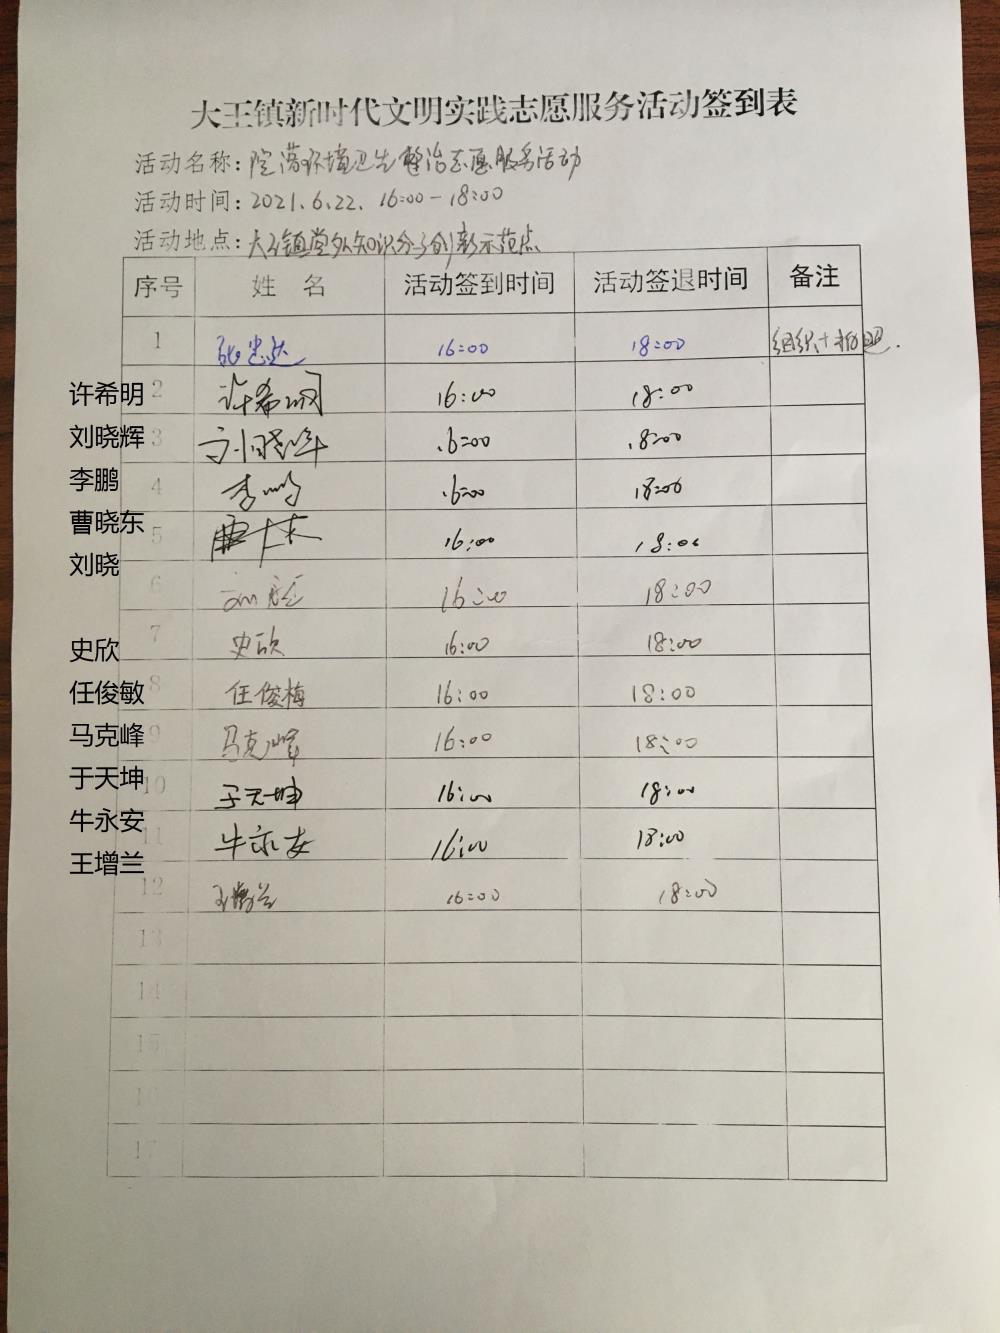 大王镇新时代文明实践志愿服务活动签到表
活动名称：院落环境卫生整治志愿服务活动
活动时间：2021.6.22. 16:00-18:00
活动地点：大王镇党外知识分子创新示范点
序号 姓名 活动签到时间 活动签退时间 备注
1 张忠达 16:00 18:00 组织+拍照.
许希明 2 许希明 16:00 18:00
刘晓辉 3 刘晓晖 16:00 18:00
李鹏 4 李鹏 16:00 18:00
曹晓东 5 16:00 18:00
刘晓 6 16:00 18:00
史欣 7 史欣 16:00 18:00
任俊敏 8 任俊梅 16:00 18:00
马克峰 9 马克峰 16:00 18:00
于天坤 10 于天坤 16:00 18:00
牛永安 11 牛永安 16:00 18:00
王增兰 12 王增兰 16:00 18:00
13
14
15
16
17